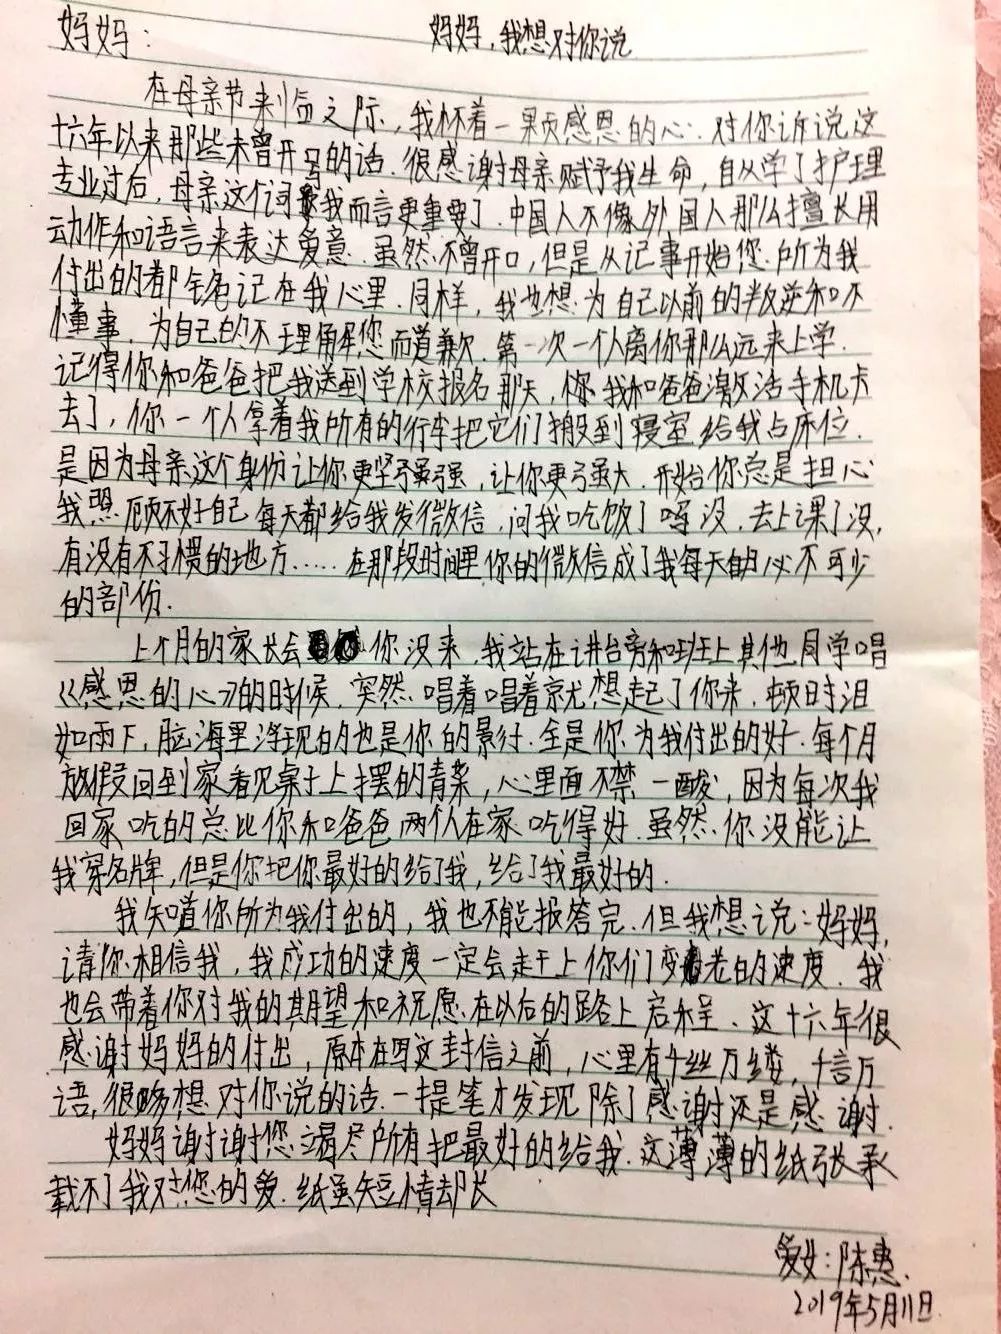 妈妈： 妈妈，我想对你说
在母亲节来临之际，我怀着一颗感恩的心.对你诉说这
十六年以来那些未曾开口的话.很感谢母亲赋予我生命，自从学了护理
专业过后，母亲这个词对我而言更重要了.中国人不像外国人那么擅长用
动作和语言来表达爱意.虽然不曾开口，但是从记事开始您.所为我
付出的都铭记在我心里.同样，我也想为自己以前的叛逆和不
懂事.为自己的不理解您而道歉.第一次一个人离你那么远来上学.
记得你和爸爸把我送到学校报名那天，你.我和爸爸激活手机卡
去了，你一个人拿着我所有的行李把它们搬到寝室给我占床位.
是因为母亲这个身份让你更坚强，让你更强大.开始你总是担心
我照顾不好自己每天都给我发微信，问我吃饭了吗没.去上课了没，
有没有不习惯的地方……在那段时间里你的微信成了我每天的必不可少
的部份.
上个月的家长会你没来，我站在讲台旁和班上其他同学唱
《感恩的心》的时候.突然唱着唱着就想起了你来.顿时泪
如雨下，脑海里浮现的也是你的景付.全是你为我付出的好.每个月
放假回到家看见桌子上摆的青菜，心里面不禁一酸，因为每次我
回家吃的总比你和爸爸两个人在家吃得好.虽然你没能让
我穿名牌，但是你把你最好的给了我，给了我最好的.
我知道你所为我付出的，我也不能报答完.但我想说：妈妈，
请你相信我，我成功的速度一定会赶上你们变老的速度.我
也会带着你对我的期望和祝愿在以后的路上启程.这十六年很
感谢妈妈的付出，原本在写这封信之前，心里有千丝万缕，千言万
语，很多想对你说的话.一提笔才发现除了感谢还是感谢.
妈妈谢谢您竭尽所有把最好的给我.这薄薄的纸张承
载不了我对您的爱.纸虽短情却长
爱女：陈惠.
2019年5月11日